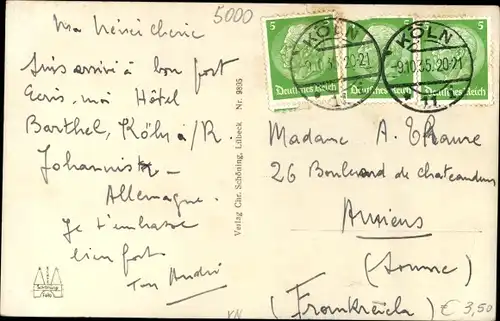 Ma chérie
5000
Suis arrivé à bon port
Ecris-moi Hôtel
Barthel, Köln a/R.
Johannisstr.
Allemagne.
Je t'embrasse
bien fort
Ton André
Schöning
Foto
Verlag Chr. Schöning, Lübeck Nr. 9835
5 5 5
Deutsches Reich Deutsches Reich Deutsches Reich
KÖLN KÖLN
-9.10.35.20-21
11 11
Madame A.
26 Boulevard de Chateaudun
Amiens
(Somme)
(Frankreich)
€ 3,50